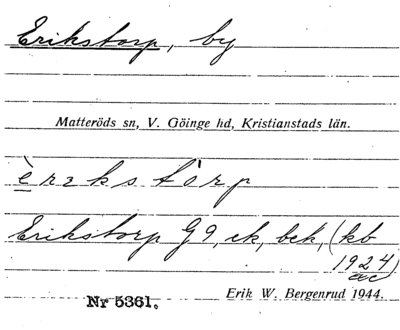 Erikstorp, by
Matteröds sn, V. Göinge hd, Kristianstads län.
èrɩkstòrp
Erikstorp G9, ek, bek, (kb
1924)
Nr 5361.
Erik W. Bergenrud 1944.